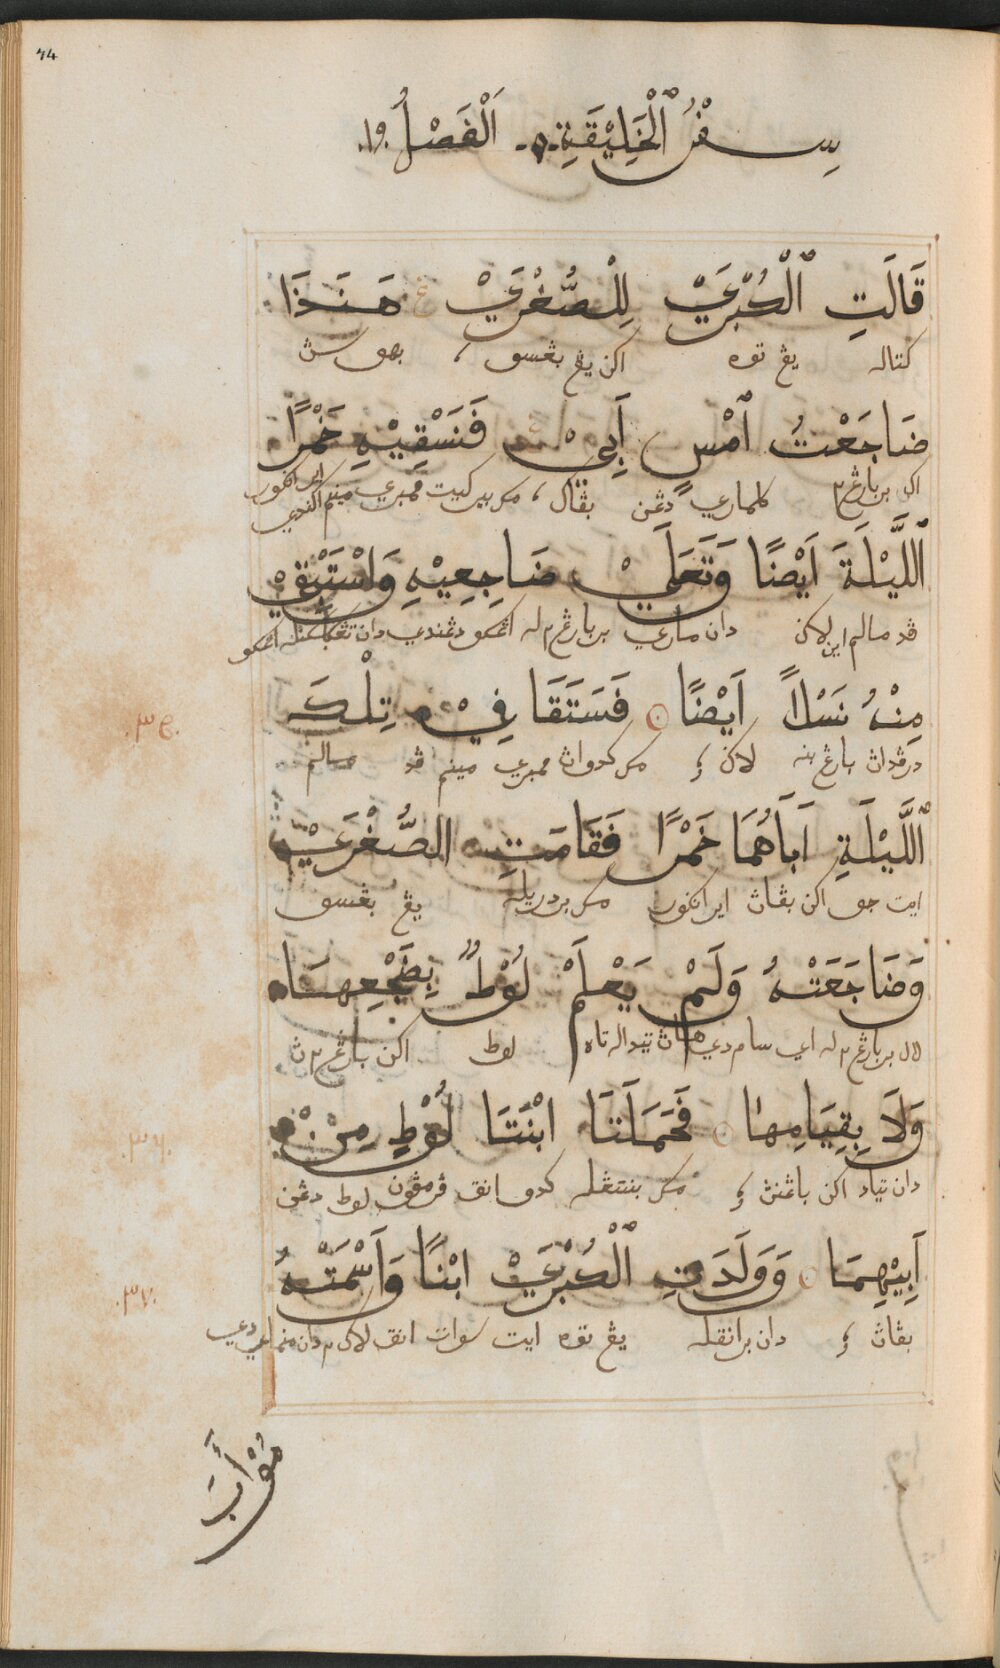 74
سِفْرُ ٱلْخَلِيْقَةِ ٠٥٠ اَلْفَصْلُ ١٩.
قَالَتِ ٱلْكُبْرَيْ لِلْصُّغْرَيْ هَـٰنَذَا
كتاله يڠ توه اكن يڠ بڠسو ، بهو سڽ
ضَاجَعْتُ ٱمْسِ اَبِيْ فَنَسْقِيْهِ خَمْرًا
اكو برباريڠ٢ كلماري دڠن بڤاك ، مك بير كيت ممبري مينم اكندي اير اڠكور
ٱللَّيْلَةَ اَيْضًا وَتَعَلَيْ ضَاجِعِيْهِ وَاسْتَبْقِيْ
ڤد مالم اين لاكن دان ماري برباريڠ٢ له اڠكو دڠندي دان تڠكلكنله اڠكو
مِنْهُ نَسْلاً اَيْضًا فَسَتَقَا فِيْ تِلْكَ
.٣٥.
درڤداڽ بنه لاكن مك كدواڽ ممبري مينم ڤد مالم
ٱللَّيْلَةِ اَبَاهُمَا خَمْرًا فَقَامَتِ الصُّغْرَيْ
ايت جو اكن بڤاڽ اير اڠكور مك بردريله يڠ بڠسو
وَضَاجَعَتْهُ وَلَمْ يَعْلَمْ لُوْطٌ بِضَجْعِهَا
لال برباريڠ٢ له اي سام دي تيداله تاه لوط اكن باريڠ٢ڽ
وَلَا بِقِيَامِهَا فَحَمَلَتَا ابْنَتَا لُوْطٍ مِنْ
.٣٦.
دان تياد اكن باڠنڽ مك بنتڠله كدو انق ڤرمڤون لوط دڠن
اَبِيْهِمَا وَوَلَدَتِ ٱلْكُبْرَيْ ابْنًا وَاَسْمَتْهُ
.٣٧.
بڤاڽ دان برانقله يڠ توه ايت سوات انق لاكي٢ دان منماي دي
مُوْاَبَ